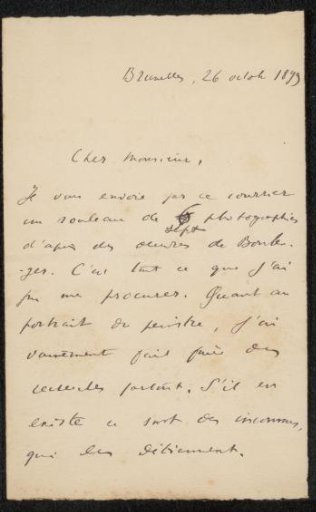 Bruxelles, 26 octob 1899
Cher Monsieur,
Je vous envoie par ce courrier
un rouleau de sept photographies
d'après des œuvres de Boulen-
-ger. C'est tout ce que j'ai
pu me procurer. Quant au
portrait du peintre, j'ai
vainement fait faire des
recherches partout. S'il en
existe ce sont des inconnus,
qui les détiennent.